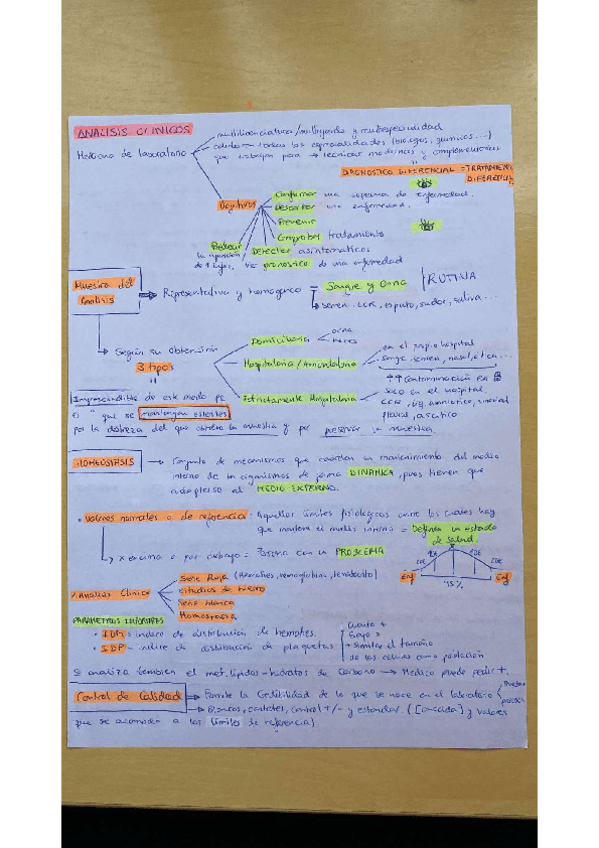 ANALISIS CLINICOS
Medicina de laboratorio
multidisciplinar
y multiespecialidad
todas las especialidades (biólogos, químicos...)
que trabajan para → técnicas modernas y complementarias
DIAGNOSTICO DIFERENCIAL = TRATAMIENTO DIFERENCIAL
Objetivos
Confirmar una sospecha de enfermedad.
Descartar una enfermedad.
Prevenir
Comprobar tratamiento
Detectar asintomáticos
Predecir la aparición de
Ver pronostico de una enfermedad
Muestra del Analisis
Representativa y homogenea = Sangre y Orina RUTINA
Semen, LCR, esputo, sudor, saliva...
Según su obtención
3 tipos
Domiciliaria
orina
heces
Hospitalaria / Ambulatoria
en el propio hospital
sangre, semen, nasal, etc...
Estrictamente Hospitalaria
↑↑ Contaminación
SOLO en el hospital
LCR, liq. amniotico, sinovial
pleural, ascitico
Imprescindible de este modo pe
es " que se mantengan esteriles
por la destreza del que obtiene la muestra y por preservar la muestra.
HOMEOSTASIS → Conjunto de mecanismos que coordinan un mantenimiento del medio
interno de un organismo de forma DINAMICA, pues tienen que
adaptarse al MEDIO EXTERNO.
• Valores normales o de referencia: Aquellos limites fisiologicos entre los cuales hay
que mantener el medio interno = Definen un estado de salud.
x encima o por debajo = Persona con un PROBLEMA
Enf
95%
Enf
Analisis Clinico
Serie Roja (Hematies, hemoglobina, hematocrito)
estudios de hierro
Serie blanca
Hemostasia
PARAMETROS INFORMES
• IDH = indice de distribución de hematies.
• IDP - indice de distribución de plaquetas
Cuanto +
bajo >
+ similar el tamaño
de las celulas como población
Se analiza tambien el met. lipidos - hidratos de carbono → Medico puede pedir +.
Control de Calidad
Permite la credibilidad de lo que se hace en el laboratorio
Blancos, controles, control +/- y estandar. ([conocida] y valores
que se acomoden a los limites de referencia)